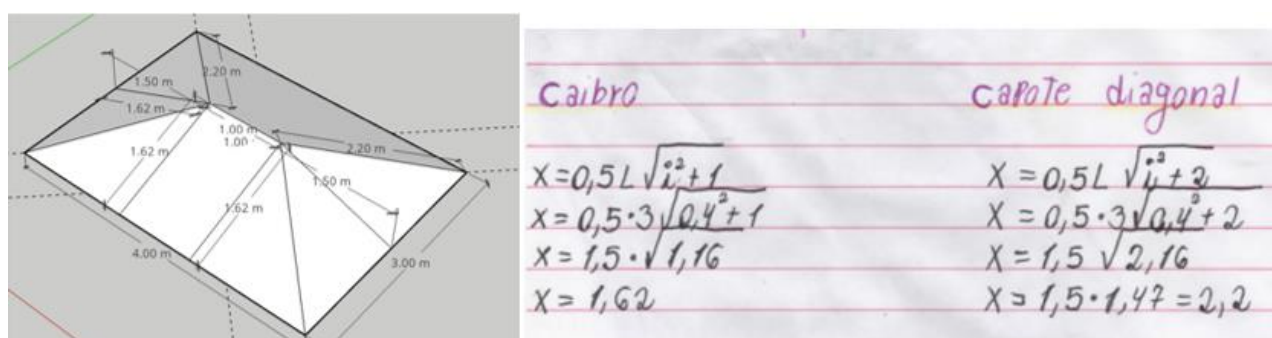 2.20 m
1.50 m
1.62 m
1.00 m
1.00
1.62 m
2.20 m
1.50 m
1.62 m
4.00 m
3.00 m
Caibro
X=0,5L√i²+1
X=0,5·3√0,4²+1
X=1,5·√1,16
X=1,62
CAPOTE diagonal
X=0,5L √i²+2
X=0,5·3√0,4²+2
X=1,5 √2,16
X=1,5·1,47=2,2